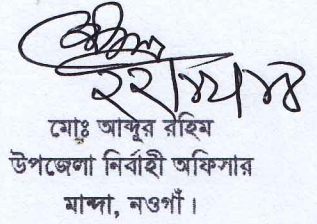 মোঃ আব্দুর রহিম
উপজেলা নির্বাহী অফিসার
মান্দা, নওগাঁ।